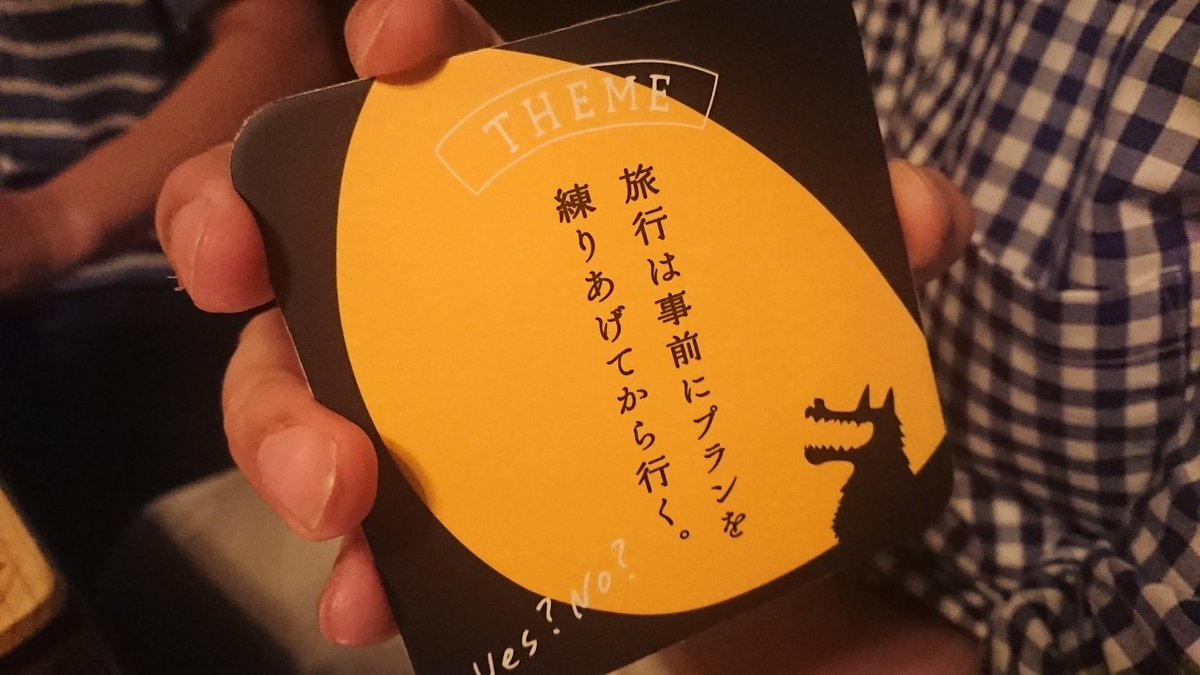 THEME
旅行は事前にプランを
練りあげてから行く。
Yes? No?